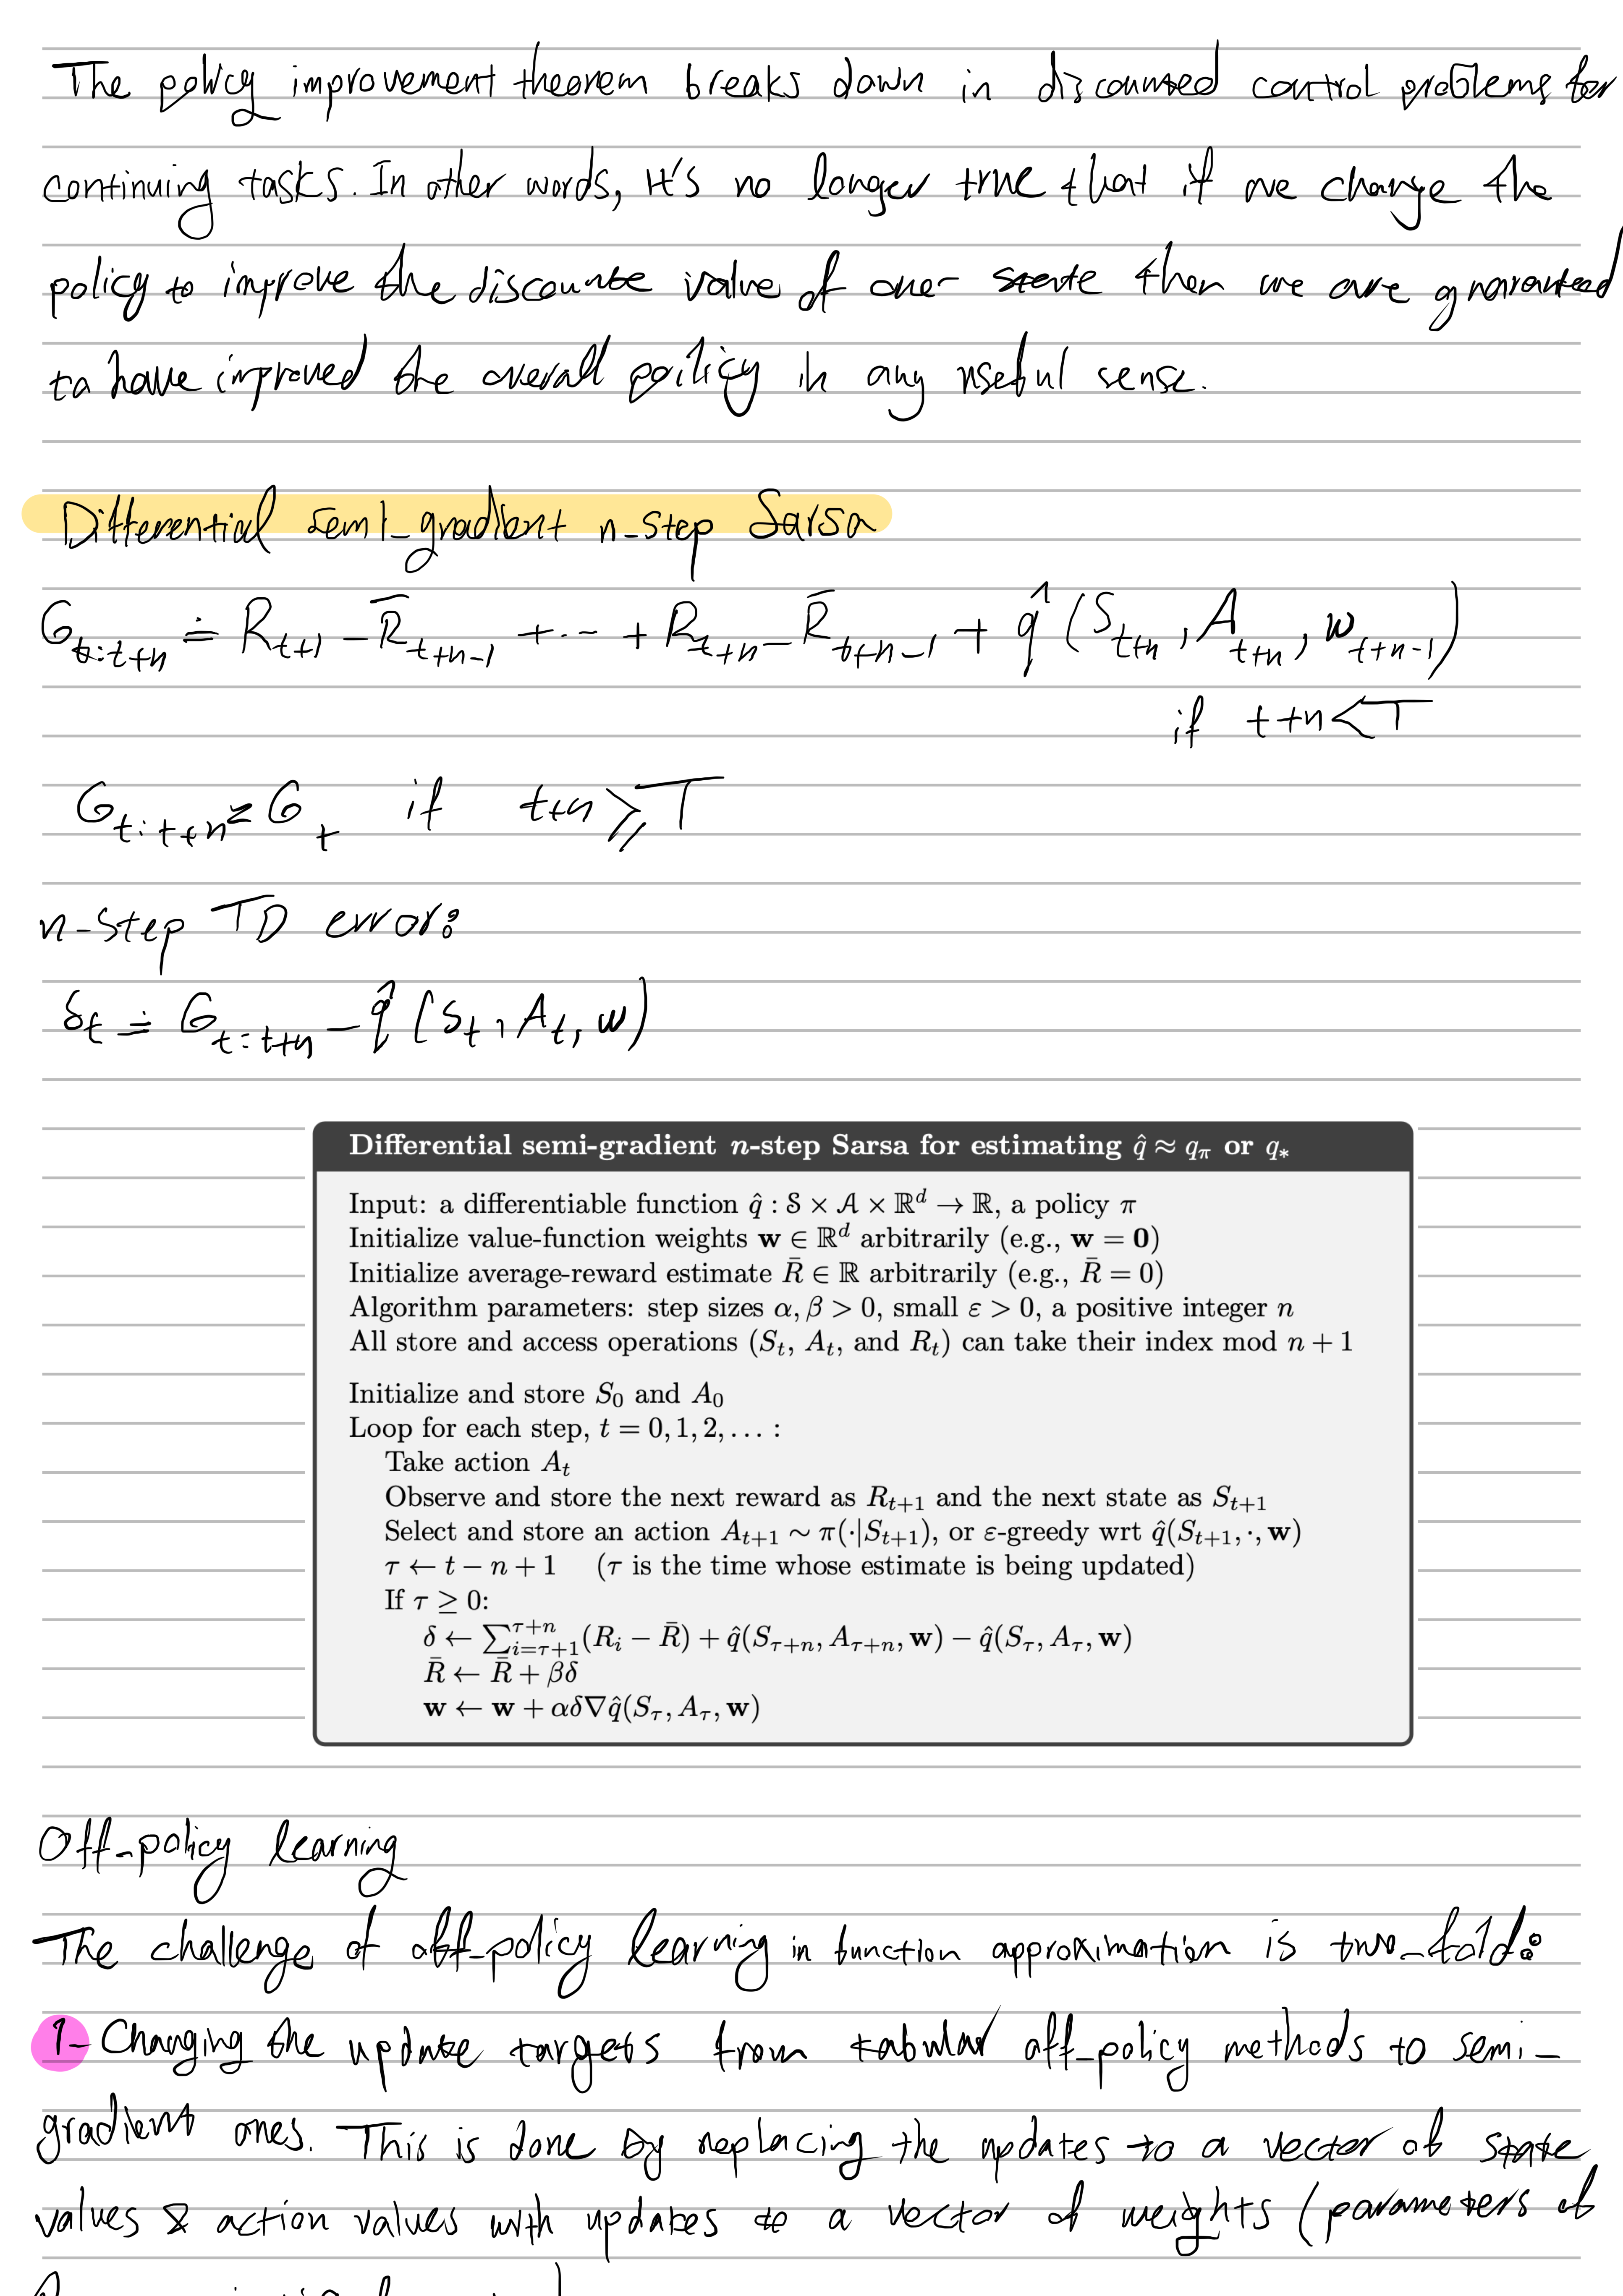 The policy improvement theorem breaks down in discounted control problems for
continuing tasks. In other words, it's no longer true that if we change the
policy to improve the discounte value of one state then we are guaranteed
to have improved the overall policy in any useful sense.
Differential semi-gradient n-step Sarsa
G_{t:t+n} ≐ R_{t+1} − R̄_{t+n-1} + ··· + R_{t+n} − R̄_{t+n-1} + q̂ (S_{t+n}, A_{t+n}, w_{t+n-1})
if t+n < T
G_{t:t+n} = G_t if t+n ≥ T
n-step TD error:
δ_t ≐ G_{t:t+n} − q̂ (S_t, A_t, w)
Differential semi-gradient n-step Sarsa for estimating q̂ ≈ q_π or q_*
Input: a differentiable function q̂ : S × A × ℝ^d → ℝ, a policy π
Initialize value-function weights w ∈ ℝ^d arbitrarily (e.g., w = 0)
Initialize average-reward estimate R̄ ∈ ℝ arbitrarily (e.g., R̄ = 0)
Algorithm parameters: step sizes α, β > 0, small ε > 0, a positive integer n
All store and access operations (S_t, A_t, and R_t) can take their index mod n + 1
Initialize and store S_0 and A_0
Loop for each step, t = 0, 1, 2, . . . :
Take action A_t
Observe and store the next reward as R_{t+1} and the next state as S_{t+1}
Select and store an action A_{t+1} ∼ π(·|S_{t+1}), or ε-greedy wrt q̂(S_{t+1}, ·, w)
τ ← t − n + 1 (τ is the time whose estimate is being updated)
If τ ≥ 0:
δ ← ∑_{i=τ+1}^{τ+n} (R_i − R̄) + q̂(S_{τ+n}, A_{τ+n}, w) − q̂(S_τ, A_τ, w)
R̄ ← R̄ + βδ
w ← w + αδ∇q̂(S_τ, A_τ, w)
Off-policy learning
The challenge of off-policy learning in function approximation is two-fold:
1- Changing the update targets from tabular off-policy methods to semi-
gradient ones. This is done by replacing the updates to a vector of state
values & action values with updates to a vector of weights (parameters of